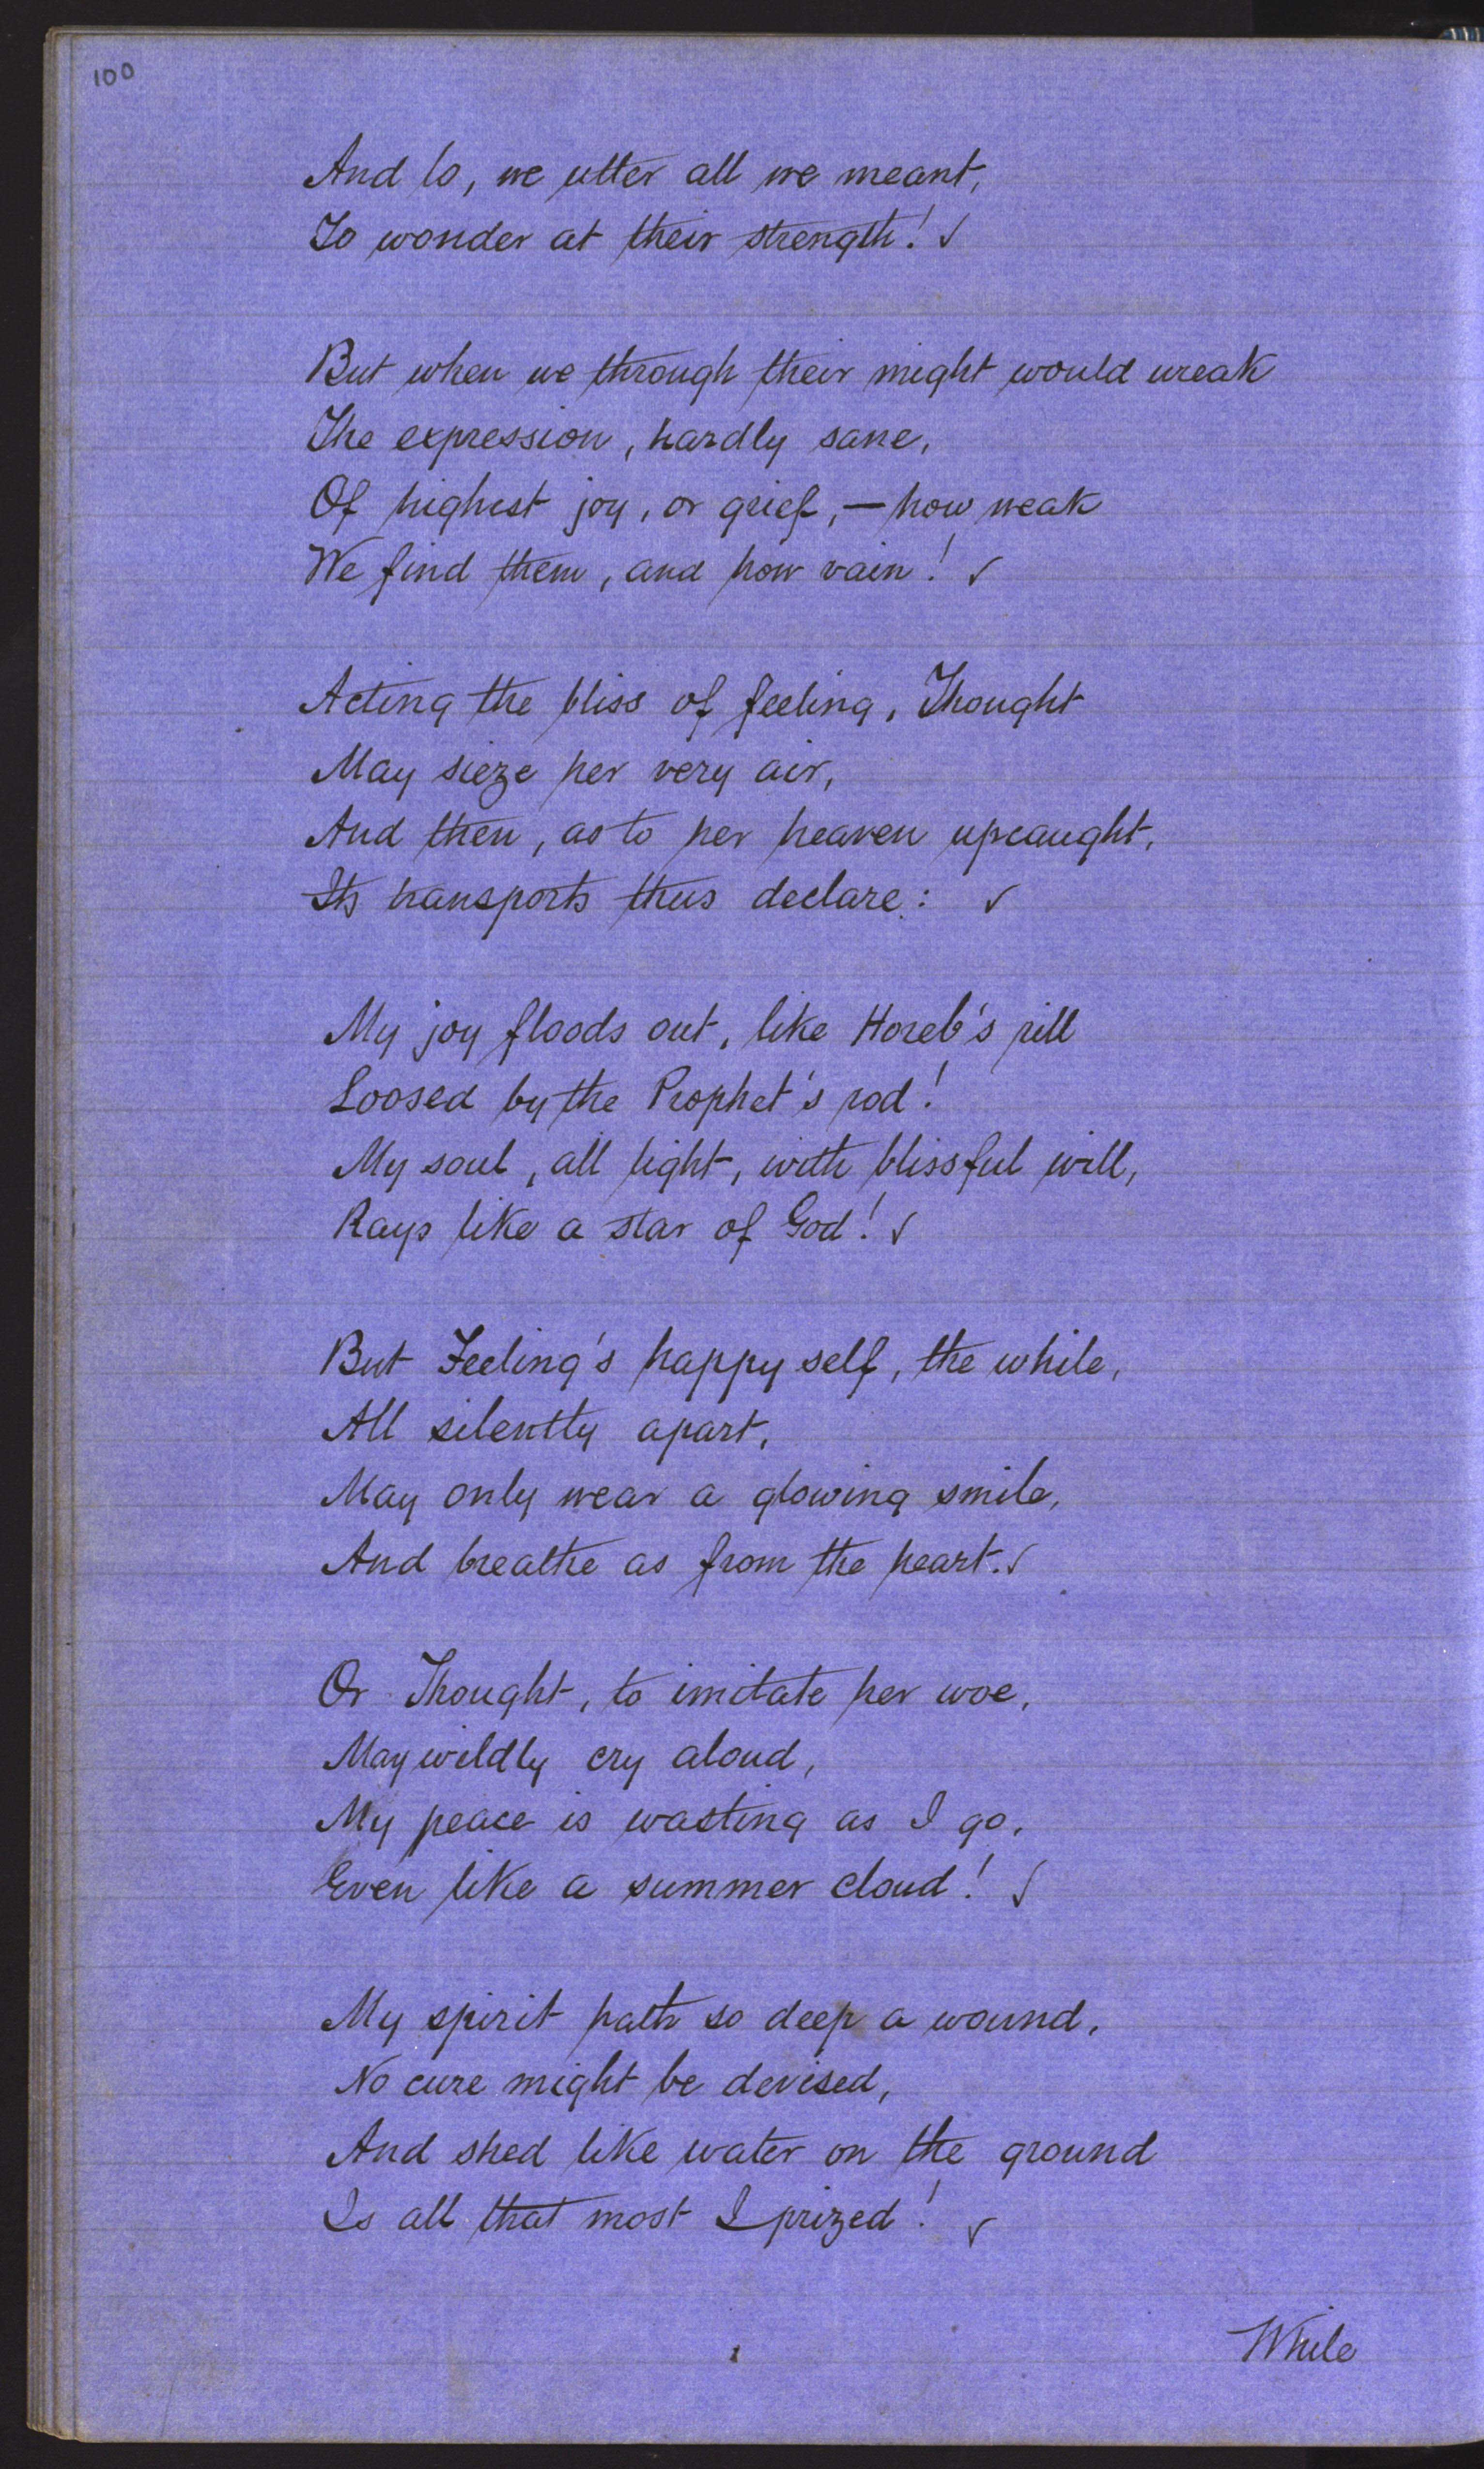 100
And lo, we utter all we meant,
To wonder at their strength! ✓
But when we through their might would wreak
The expression, hardly sane,
Of highest joy, or grief, — how weak
We find them, and how vain! ✓
Acting the bliss of feeling, Thought
May sieze her very air,
And then, as to her heaven upcaught,
Its transports thus declare: ✓
My joy floods out, like Horeb's rill
Loosed by the Prophet's rod!
My soul, all light, with blissful will,
Rays like a star of God! ✓
But Feeling's happy self, the while,
All silently apart,
May only wear a glowing smile,
And breathe as from the heart. ✓
Or Thought, to imitate her woe,
May wildly cry aloud,
My peace is wasting as I go,
Even like a summer cloud! ✓
My spirit hath so deep a wound,
No cure might be devised,
And shed like water on the ground
Is all that most I prized! ✓
While